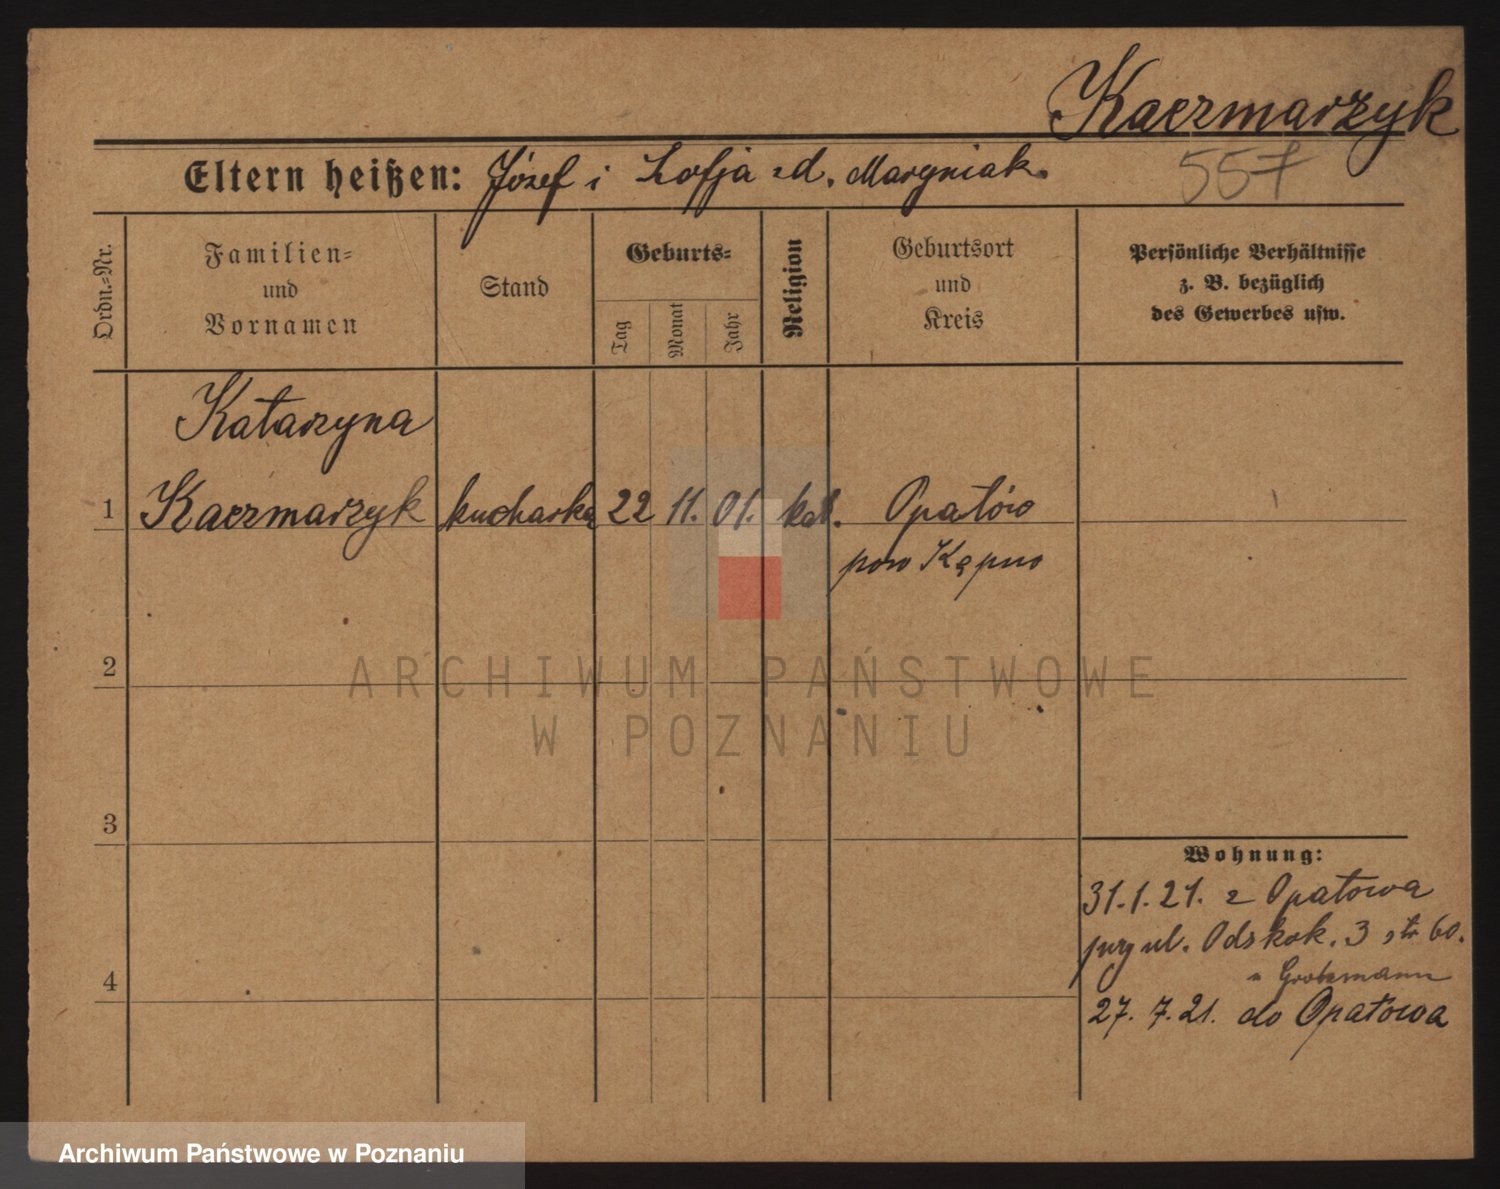 Kaczmarzyk
Eltern heißen: Józef i Zofja zd. Maryniak.
557
Ordn.-Nr.
Familien-
und
Vornamen
Stand
Geburts-
Tag
Monat
Jahr
Religion
Geburtsort
und
Kreis
Persönliche Verhältnisse
z. B. bezüglich
des Gewerbes usw.
Katarzyna
1 Kaczmarzyk kucharka 22 11. 01. kat. Opatów
pow Kępno
2
ARCHIWUM PAŃSTWOWE
W POZNANIU
3
Wohnung:
31.1.21. z Opatowa
przy ul. 3 60.
4
27. 7. 21. do Opatowa
Archiwum Państwowe w Poznaniu